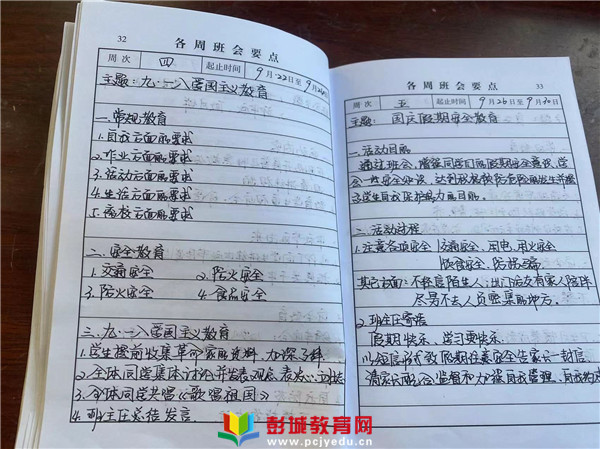 32
各周班会要点
周次 四 起止时间 9月22日至9月26日
主题:九·一八爱国主义教育
一、常规教育
1.自我方面的要求
2.作业方面的要求
3.活动方面的要求
4.生活方面的要求
5.离校方面的要求
二、安全教育
1.交通安全 2.防火安全
3.防火安全 4.食品安全
三、九·一八爱国主义教育
1.学生提前收集革命家的资料,加深了解
2.全体同学集体讨论并发表观点,表
3.全体同学共唱《歌唱祖国》
4.班主任总结发言。
各周班会要点
33
周次 五 起止时间 9月26日至9月30日
主题: 国庆假期安全教育
一、活动目的
通过班会,增强同学们的假期安全意识,学
会一些安全知识,达到
学生自我保护能力的目的。
二、活动过程
1.注意各项安全 交通安全、用电、用火安全
饮食安全、防
其它方面:不轻信陌生人;出门给友有家人陪伴
尽量不去人员密集的地方。
2.班主任寄语
假期快乐,学习要快乐。
以短信形式致假期任安全告家长一封信。
请家长配合监督和加强自我管理,自我
彭城教育网
www.pcjyedu.cn